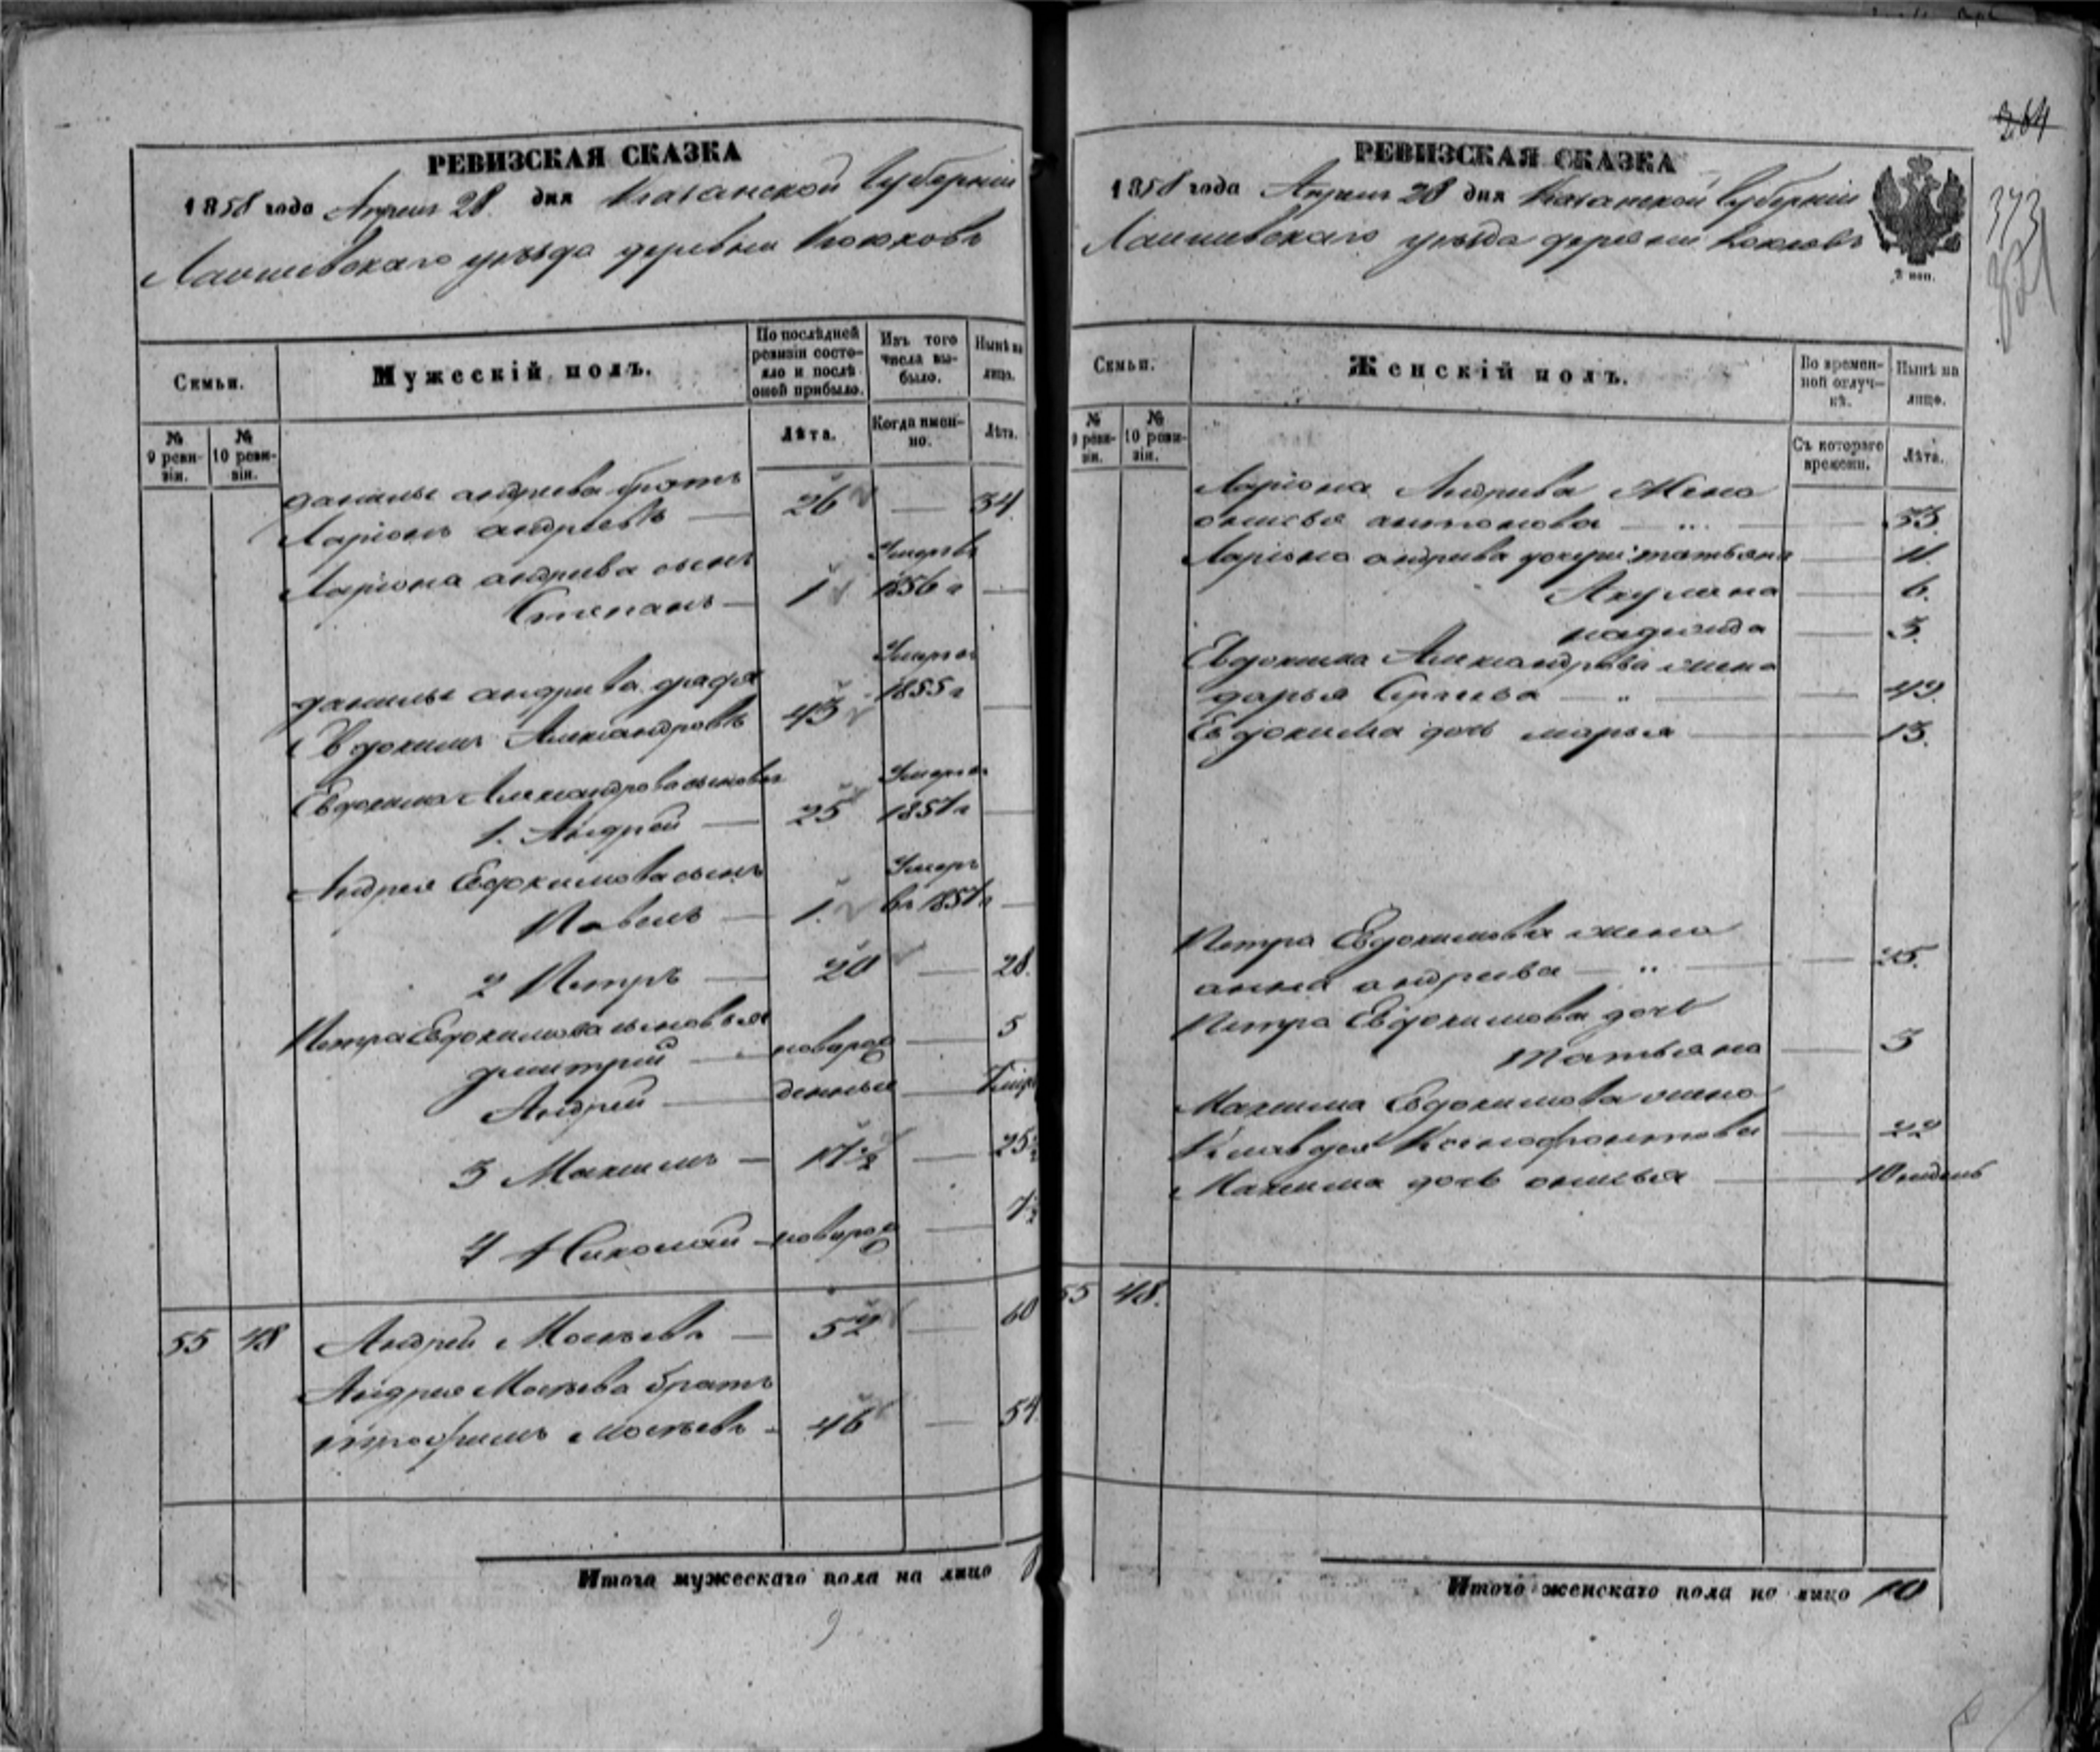 РЕВИЗСКАЯ СКАЗКА
1858 года Апреля 28 дня Казанской Губерніи
Лаишевскаго уѣзда деревни
Семьи.
№ 9 ревизіи.
№ 10 ревизіи.
Мужескій полъ.
По послѣдней ревизіи состояло и послѣ оной прибыло.
Лѣта.
Изъ того числа выбыло.
Когда именно.
Нынѣ на лицо.
Лѣта.
данилы андреева братъ
Ларіонъ андреевъ — 26 — 34
Ларіона андреева сынъ
Степанъ — 1 Умеръ въ 1856 г —
данилы андреева дядя
Евдокимъ Александровъ 43 Умеръ въ 1855 г —
Евдокима Александрова сыновья
1. Андрей — 25 Умеръ въ 1857 г —
Андрея Евдокимова сынъ
Павелъ — 1. Умеръ въ 1857 г —
2 Петръ — 20 — 28.
Петра Евдокимова сыновья
дмитрій — новорож — 5
Андрей — денные —
3 Максимъ — 17½ — 25½
4 Николай — новорож —
55 48 Андрей Мосѣевъ — 52 — 60
Андрея Мосѣева братъ
трофимъ Мосѣевъ - 46 — 54
Итого мужескаго пола на лицо
9
364
373
РЕВИЗСКАЯ СКАЗКА
1858 года Апреля 28 дня Казанской Губерніи
Лаишевскаго уѣзда деревни
2 коп.
Семьи.
№ 9 ревизіи.
№ 10 ревизіи.
Женскій полъ.
Во временной отлучкѣ.
Съ котораго времени.
Нынѣ на лицо.
Лѣта.
Ларіона Андреева Жена
аксинья антонова — " — 33.
Ларіона андреева дочери: татьяна — 11.
Акулина — 6.
надежда — 3.
Евдокима Александрова жена
дарья Сергѣева — " — 49.
Евдокима дочь марья — 13.
Петра Евдокимова жена
анна андреева — " — 25.
Петра Евдокимова дочь
татьяна — 3
Максима Евдокимова жена
Клавдея Ксенофонтова — 22
Максима дочь аксинья — 10 недель
55 48.
Итого женскаго пола на лицо 10